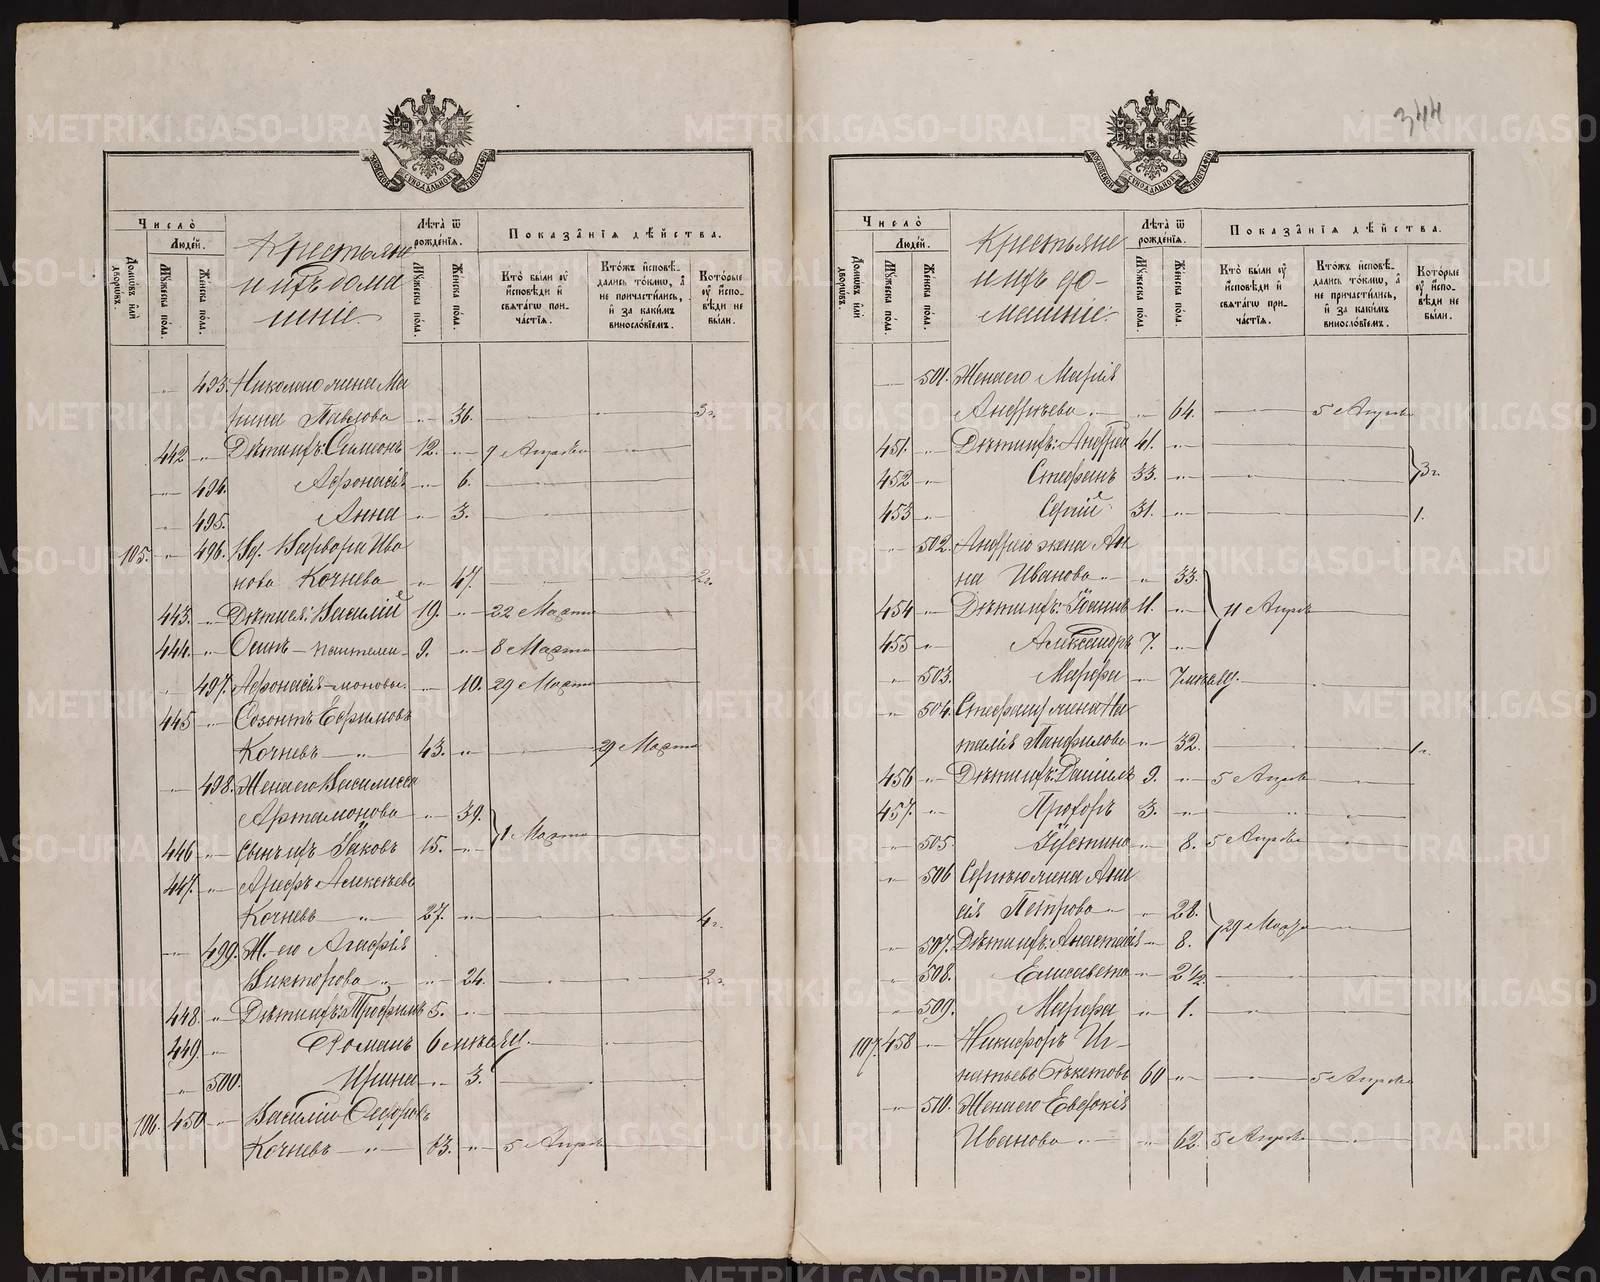 344
МОСКОВСКОЙ СѴНОДАЛЬНОЙ ТИПОГРАФІИ
Число̀
Людей.
Домѡвъ или дворѡвъ.
Мꙋжеска пола.
Женска пола.
Крестьяне
и ихъ дома
шніе.
Лѣта̀ ѿ рожденїѧ.
Мꙋжеска пола.
Женска пола.
Показанїѧ дѣйства.
Кто̀ были оу҆ исповѣди и свѧтагѡ причастїѧ.
Ктожъ исповѣдались токмѡ, а не причастились, и за какимъ винословїемъ.
Которые оу҆ исповѣди не были.
" 493. Николаю жена Ма
рина Павлова " 36. " " 3 г.
442 " Дѣти ихъ: Симеонъ 12. " 9 Апрѣля
" 494. Афонасія " 6.
" 495. Анна " 3.
105. " 496. Вд. Варвара Ива
нова Кочнева " 47. 2 г.
443. " Дѣти ея: Василій 19. " 22 Марта
444. " Осипъ 9. " 8 Марта
" 497. Афонасія " 10. 29 Марта
445 " Созонтъ Ефимовъ
Кочневъ " 43. " 29 Марта
" 498. Жена его Василисса
Артамонова " 39.
1 Марта
446 " Сынъ ихъ Іаковъ 15. "
447. " Арефъ Алексѣевъ
Кочневъ " 27. " 4 г.
" 499. Ж. его Агафія
Викторова " 24. 2 г.
448. " Дѣти ихъ: Трофимъ 5. "
449. " Романъ 6 мѣсяц.
" 500. Ирина " 3.
106. 450 " Василій
Кочневъ " 63. " 5 Апрѣля
МОСКОВСКОЙ СѴНОДАЛЬНОЙ ТИПОГРАФІИ
Число̀
Людей.
Домѡвъ или дворѡвъ.
Мꙋжеска пола.
Женска пола.
Крестьяне
и ихъ до-
машніе.
Лѣта̀ ѿ рожденїѧ.
Мꙋжеска пола.
Женска пола.
Показанїѧ дѣйства.
Кто̀ были оу҆ исповѣди и свѧтагѡ причастїѧ.
Ктожъ исповѣдались токмѡ, а не причастились, и за какимъ винословїемъ.
Которые оу҆ исповѣди не были.
" 501. Жена его Марія
Андреева " " 64. 5 Апрѣля
451. " Дѣти ихъ: Андрей 41. "
452 " Стефанъ 33. " 3 г.
453 " Сергій 31. " 1.
" 502. Андрею жена Ан
на Иванова " " 33.
454 " Дѣти ихъ: Іоаннъ 11. " 11 Апрѣля
455 " Александръ 7. "
" 503. Марфа " 7 мѣсяц.
" 504. Стефану жена На
талія Панфилова " 32. 1 г.
456 " Дѣти ихъ: Даніилъ 9. " 5 Апрѣля
457. " Прохоръ 3. "
" 505. Іустина " 8. 5 Апрѣля
" 506 Сергѣю жена Ани
сія Петрова " 28.
29 Марта
" 507. Дѣти ихъ: Анастасія " 8.
" 508. Елисавета " 2 1/2.
" 509. Марфа " 1.
107. 458 " Никифоръ Иг-
натьевъ Бѣкетовъ 60 " 5 Апрѣля
" 510. Жена его Евдокія
Иванова " " 62. 5 Апрѣля
METRIKI.GASO-URAL.RU